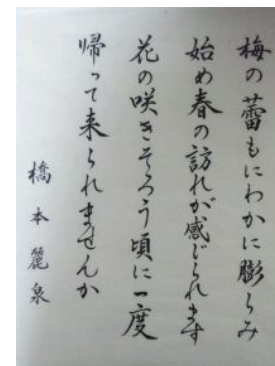 梅の蕾もにわかに膨らみ
始め春の訪れが感じられます
花の咲きそろう頃に一度
帰って来られませんか
橋本麗泉